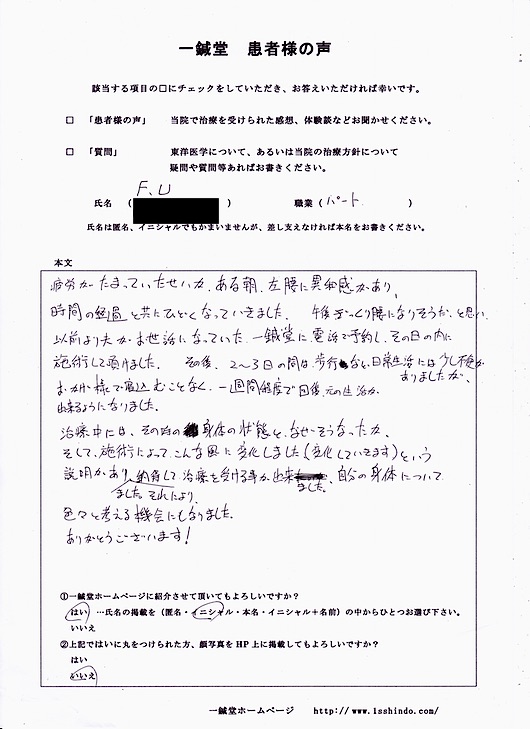 一鍼堂 患者様の声
該当する項目の□にチェックをしていただき、お答えいただければ幸いです。
□ 「患者様の声」 当院で治療を受けられた感想、体験談などお聞かせください。
□ 「質問」 東洋医学について、あるいは当院の治療方針について
疑問や質問等あればお書きください。
F.U
氏名 ( ) 職業 (パート )
氏名は匿名、イニシャルでもかまいませんが、差し支えなければ本名をお書きください。
本文
疲労がたまっていたせいか、ある朝、左腰に異和感があり、
時間の経過と共にひどくなっていきました。 午後ぎっくり腰になりそうだと思い
以前より夫がお世話になっていた、一鍼堂に電話で予約し、その日の内に
施術して頂けました。 その後、2〜3日の間は、歩行など、日常生活には少し不便が
ありましたが、
おかげ様で寝込むことなく、一週間程度で回復、元の生活が
出来るようになりました。
治療中には、その日の身体の状態と、なぜそうなったか、
そして、施術によってこんな風に変化しました(変化しています)という
説明があり、納得して治療を受ける事が出来
ました。それにより、
ました。自分の身体について
色々と考える機会にもなりました。
ありがとうございます!
①一鍼堂ホームページに紹介させて頂いてもよろしいですか?
はい …氏名の掲載を(匿名・イニシャル・本名・イニシャル+名前)の中からひとつお選び下さい。
いいえ
②上記ではいに丸をつけられた方、顔写真をHP上に掲載してもよろしいですか?
はい
いいえ
一鍼堂ホームページ http://www.isshindo.com/